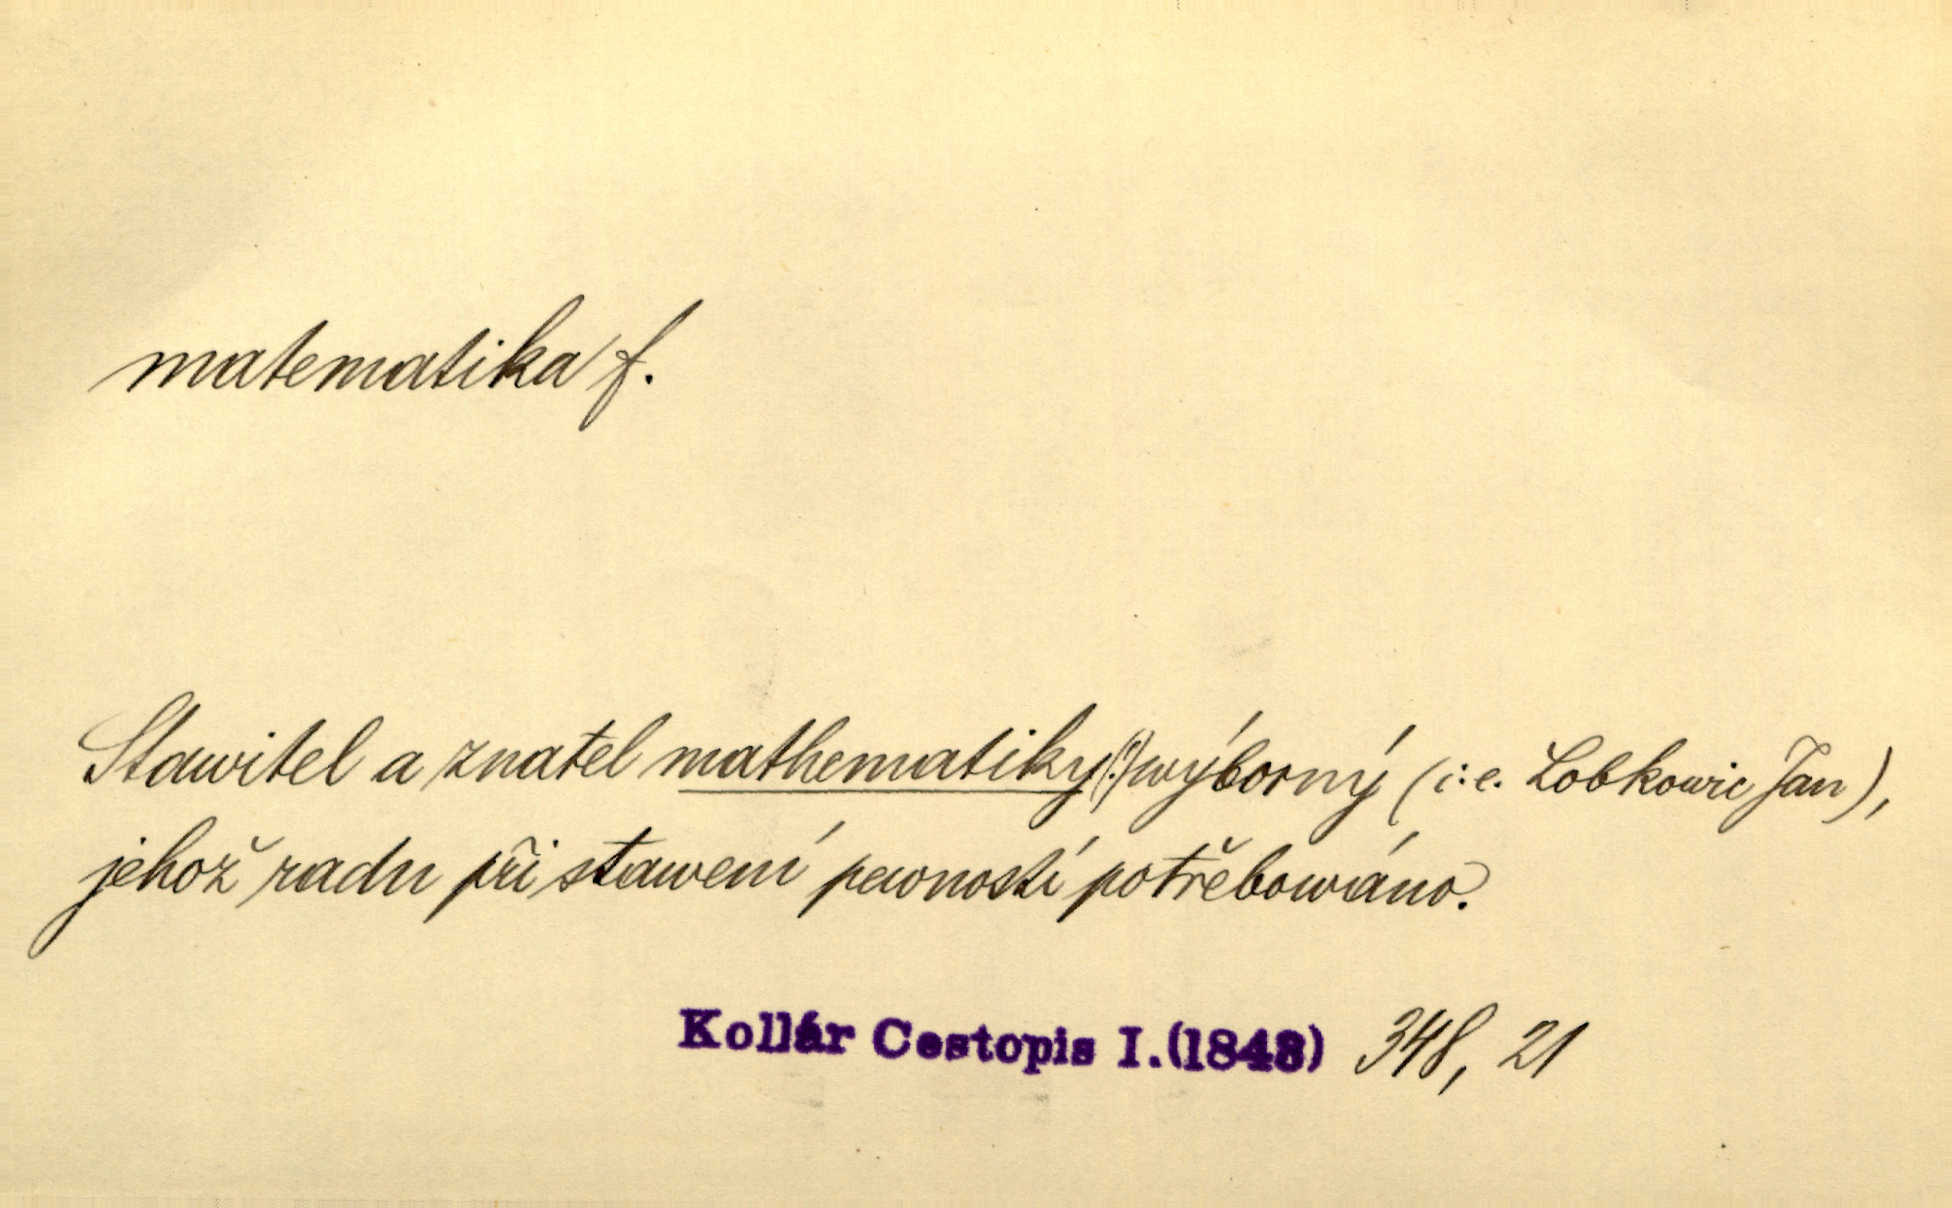 matematika f.
Stawitel a znatel mathematiky (!) wýborný (i:e. Lobkowic Jan),
jehož radu při stawení pewností potřebowáno.
Kollár Cestopis I.(1843) 348, 21